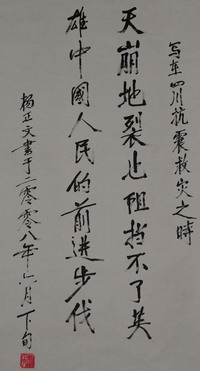 写在四川抗震救灾之時
天崩地裂也阻挡不了英
雄中國人民的前進步伐
杨正文書于二零零八年六月下旬